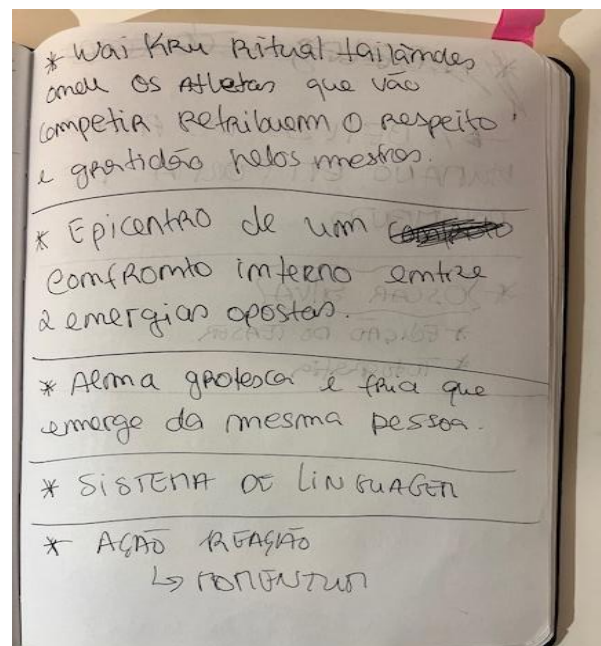 * Wai KRu Ritual tailândes
onde os Atletas que vão
competir Retribuem o Respeito
e gratidão pelos mestres.
* Epicentro de um
confronto interno entre
2 energias opostas.
* Alma grotesca e fria que
emerge da mesma pessoa.
* SISTEMA DE LINGUAGEM
* AÇÃO REAÇÃO
↳ MOMENTUM